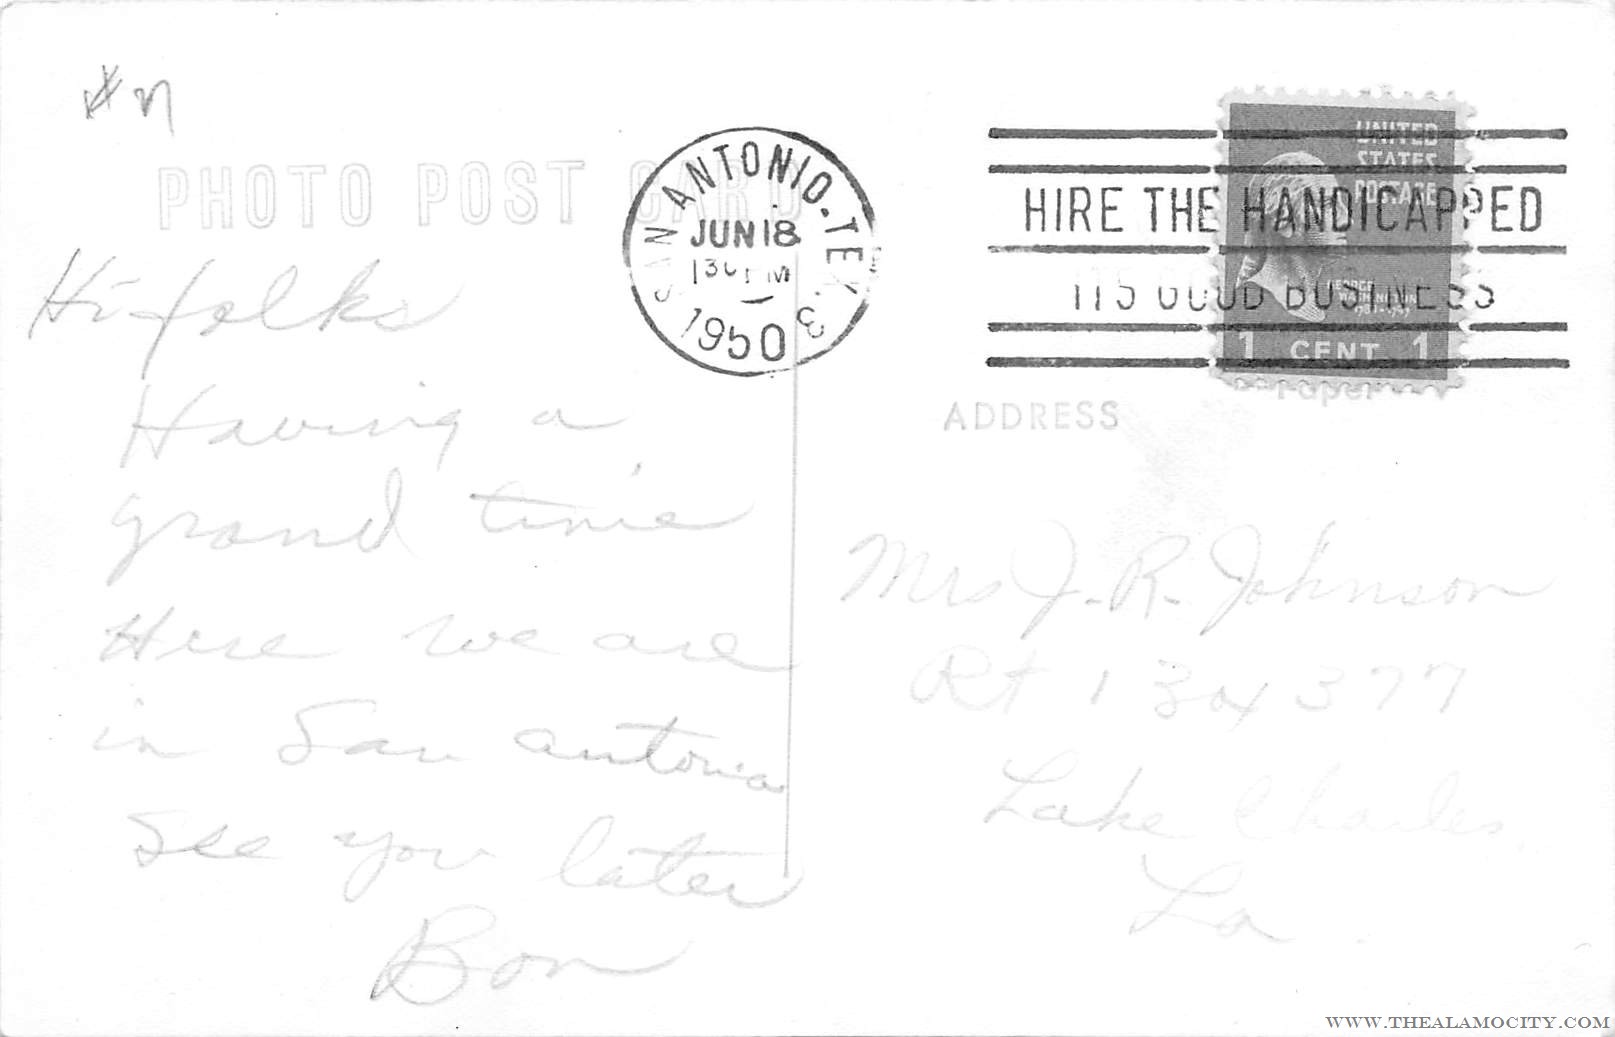 PHOTO POST CARD
Hi folks
Having a
grand time
Here we are
in San Antonio
See you later
Bon
SAN ANTONIO, TEX. 3
JUN 18
1 30 PM
1950
HIRE THE HANDICAPPED
ITS GOOD BUSINESS
UNITED
STATES
POSTAGE
GEORGE
WASHINGTON
1 CENT 1
Paper
ADDRESS
Mrs J. R. Johnson
Rt 1 Box 377
Lake Charles
La.
WWW.THEALAMOCITY.COM